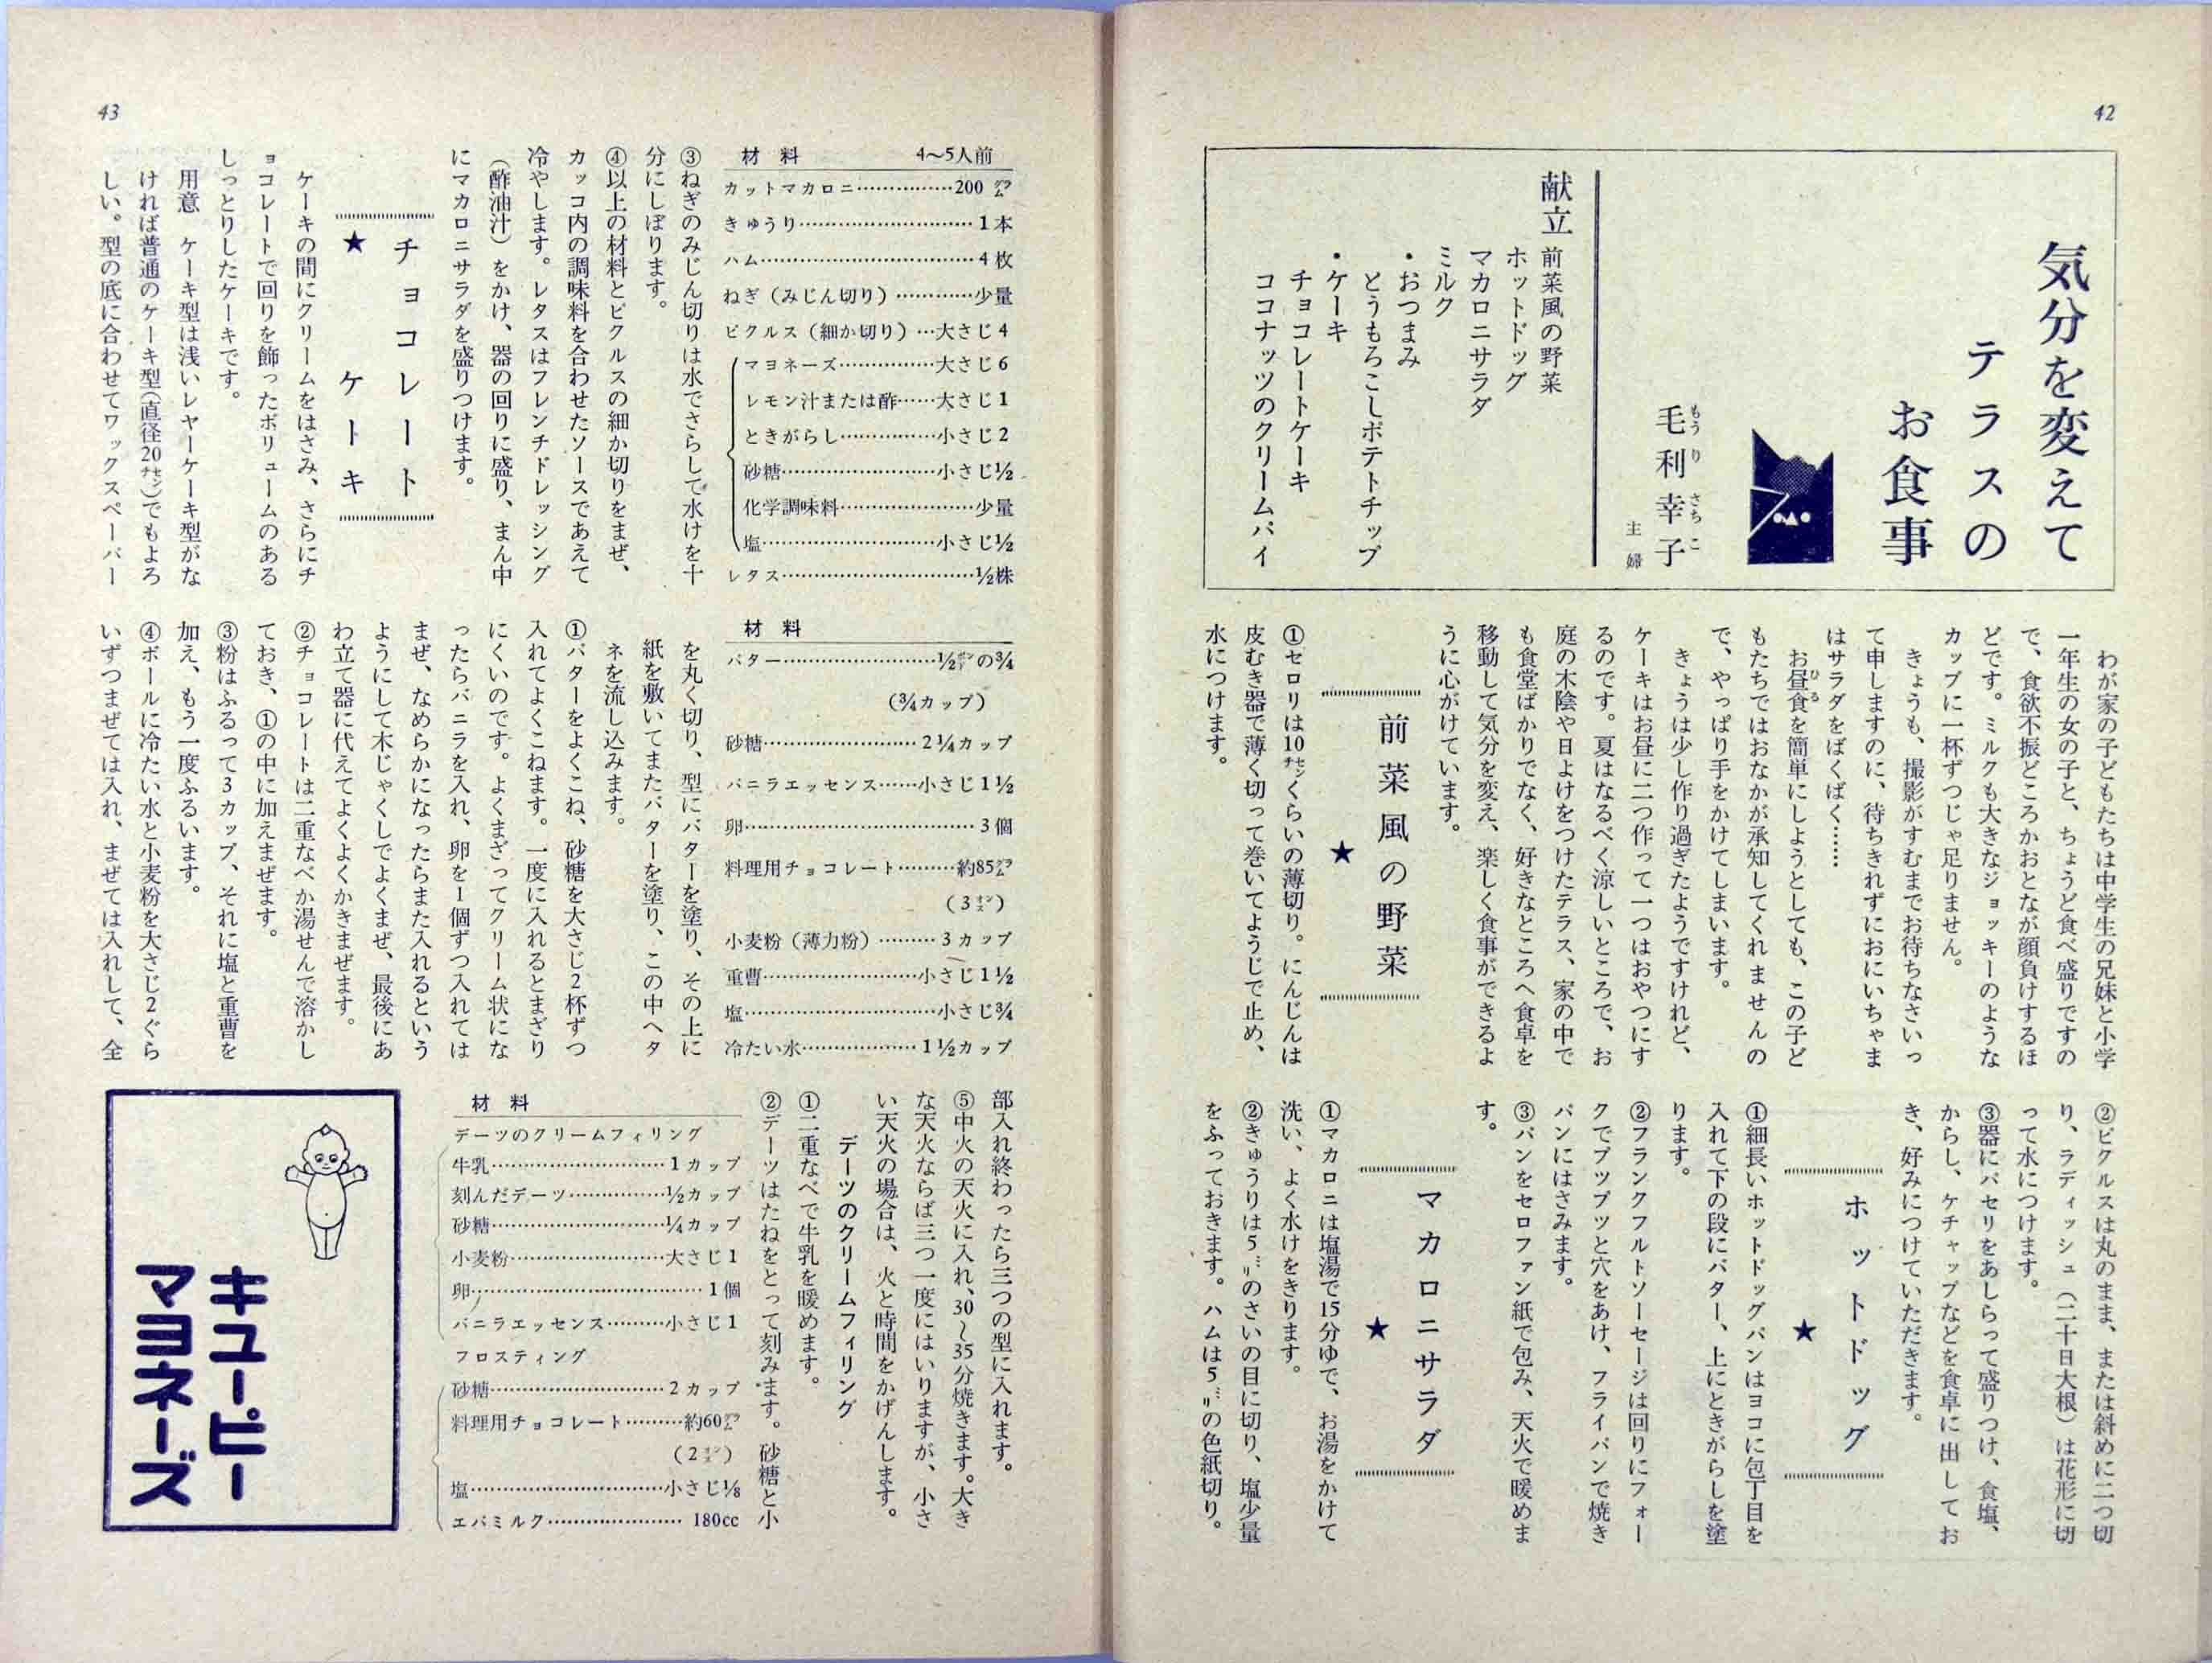 42
気分を変えて
テラスの
お食事
毛利幸子
もうりさちこ
主婦
献立
前菜風の野菜
ホットドッグ
マカロニサラダ
ミルク
・おつまみ
とうもろこしポテトチップ
・ケーキ
チョコレートケーキ
ココナッツのクリームパイ
わが家の子どもたちは中学生の兄妹と小学
一年生の女の子と、ちょうど食べ盛りですの
で、食欲不振どころかおとなが顔負けするほ
どです。ミルクも大きなジョッキーのような
カップに一杯ずつじゃ足りません。
きょうも、撮影がすむまでお待ちなさいっ
て申しますのに、待ちきれずにおにいちゃま
はサラダをぱくぱく……
お昼食を簡単にしようとしても、この子ど
ひる
もたちではおなかが承知してくれませんの
で、やっぱり手をかけてしまいます。
きょうは少し作り過ぎたようですけれど、
ケーキはお昼に二つ作って一つはおやつにす
るのです。夏はなるべく涼しいところで、お
庭の木陰や日よけをつけたテラス、家の中で
も食堂ばかりでなく、好きなところへ食卓を
移動して気分を変え、楽しく食事ができるよ
うに心がけています。
前菜風の野菜
★
①セロリは10㌢くらいの薄切り。にんじんは
皮むき器で薄く切って巻いてようじで止め、
水につけます。
②ピクルスは丸のまま、または斜めに二つ切
り、ラディッシュ（二十日大根）は花形に切
って水につけます。
③器にパセリをあしらって盛りつけ、食塩、
からし、ケチャップなどを食卓に出してお
き、好みにつけていただきます。
ホットドッグ
★
①細長いホットドッグパンはヨコに包丁目を
入れて下の段にバター、上にときがらしを塗
ります。
②フランクフルトソーセージは回りにフォー
クでプツプツと穴をあけ、フライパンで焼き
パンにはさみます。
③パンをセロファン紙で包み、天火で暖めま
す。
マカロニサラダ
★
①マカロニは塩湯で15分ゆで、お湯をかけて
洗い、よく水けをきります。
②きゅうりは5㍉のさいの目に切り、塩少量
をふっておきます。ハムは5㍉の色紙切り。
43
材料　4〜5人前
カットマカロニ……………200㌘
きゅうり……………………1本
ハム…………………………4枚
ねぎ（みじん切り）…………少量
ピクルス（細か切り）…大さじ4
マヨネーズ……………大さじ6
レモン汁または酢……大さじ1
ときがらし……………小さじ2
砂糖……………………小さじ½
化学調味料…………………少量
塩………………………小さじ½
レタス………………………½株
③ねぎのみじん切りは水でさらして水けを十
分にしぼります。
④以上の材料とピクルスの細か切りをまぜ、
カッコ内の調味料を合わせたソースであえて
冷やします。レタスはフレンチドレッシング
（酢油汁）をかけ、器の回りに盛り、まん中
にマカロニサラダを盛りつけます。
チョコレート
★ ケーキ
ケーキの間にクリームをはさみ、さらにチ
ョコレートで回りを飾ったボリュームのある
しっとりしたケーキです。
用意　ケーキ型は浅いレヤーケーキ型がな
ければ普通のケーキ型（直径20㌢）でもよろ
しい。型の底に合わせてワックスペーパー
材料
バター……………………½㍀の¾
（¾カップ）
砂糖……………………2¼カップ
バニラエッセンス……小さじ1½
卵………………………………3個
料理用チョコレート………約85㌘
（3㌉）
小麦粉（薄力粉）………3カップ
重曹……………………小さじ1½
塩…………………………小さじ¾
冷たい水………………1½カップ
を丸く切り、型にバターを塗り、その上に
紙を敷いてまたバターを塗り、この中へタ
ネを流し込みます。
①バターをよくこね、砂糖を大さじ2杯ずつ
入れてよくこねます。一度に入れるとまざり
にくいのです。よくまざってクリーム状にな
ったらバニラを入れ、卵を1個ずつ入れては
まぜ、なめらかになったらまた入れるという
ようにして木じゃくしでよくまぜ、最後にあ
わ立て器に代えてよくよくかきまぜます。
②チョコレートは二重なべか湯せんで溶かし
ておき、①の中に加えまぜます。
③粉はふるって3カップ、それに塩と重曹を
加え、もう一度ふるいます。
④ボールに冷たい水と小麦粉を大さじ2ぐら
いずつまぜては入れ、まぜては入れして、全
部入れ終わったら三つの型に入れます。
⑤中火の天火に入れ、30〜35分焼きます。大き
な天火ならば三つ一度にはいりますが、小さ
い天火の場合は、火と時間をかげんします。
デーツのクリームフィリング
①二重なべで牛乳を暖めます。
②デーツはたねをとって刻みます。砂糖と小
材料
デーツのクリームフィリング
牛乳………………………1カップ
刻んだデーツ……………½カップ
砂糖………………………¼カップ
小麦粉……………………大さじ1
卵………………………………1個
バニラエッセンス………小さじ1
フロスティング
砂糖………………………2カップ
料理用チョコレート………約60㌘
（2㌉）
塩…………………………小さじ⅛
エバミルク…………………180cc
キユーピー
マヨネーズ